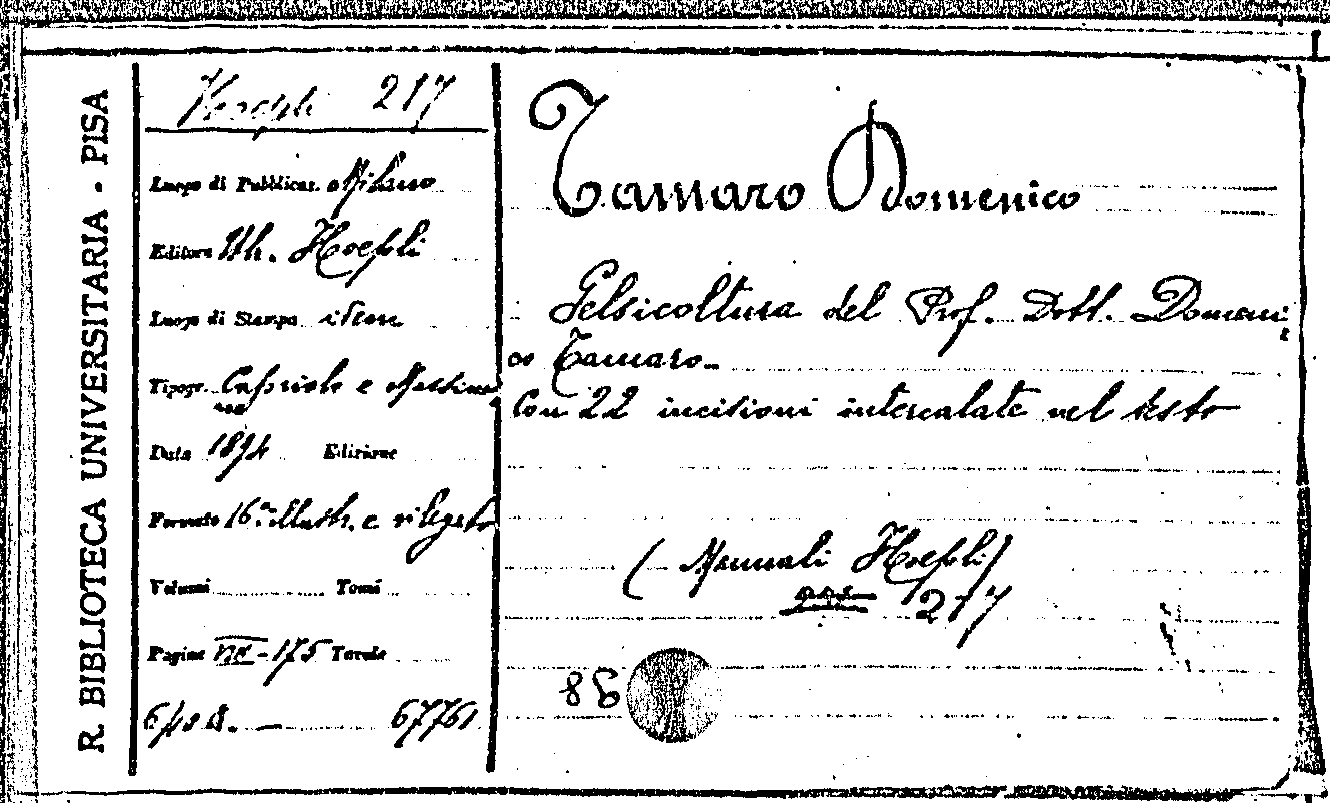 R. BIBLIOTECA UNIVERSITARIA - PISA
Hoepli 217
Luogo di Pubblicaz. Milano
Editore Ulr. Hoepli
Luogo di Stampa idem
Tipogr. Capriolo e Massimino
Data 1894 Edizione
Formato 16º illustr. e rilegato
Volumi Tomi
Pagine VII-175 Tavole
67761
Tamaro Domenico
Gelsicoltura del Prof. Dott. Domeni
co Tamaro
Con 22 incisioni intercalate nel testo
(Manuali Hoepli)
217
86